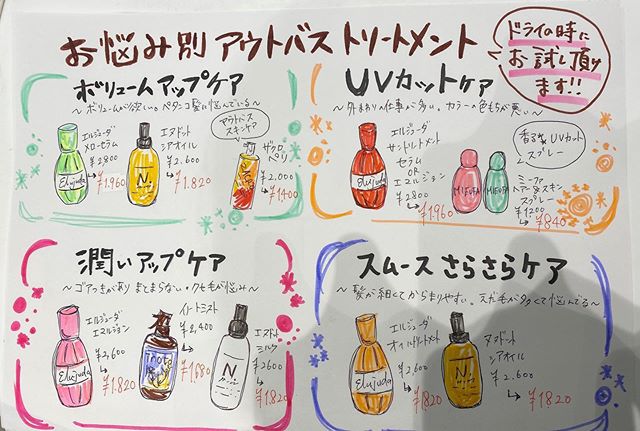 お悩み別 アウトバス トリートメント
ドライの時に
お試し頂け
ます!!
ボリュームアップケア
～ボリュームが欲しい。ペタンコ髪に悩んでいる～
エルジューダ
メローセラム
¥2,800
↳¥1,960
Elujuda
N.
エヌドット
シアオイル
¥2,600
↳¥1,820
アウトバス
スキンケア
ザクロ
ペリ
¥2,000
↳¥1,400
UVカットケア
～外まわりの仕事が多い。カラーの色もちが悪い～
エルジューダ
サントリートメント
セラム
OR
エマルジョン
¥2800
↳¥1,960
Elujuda
MIEUFA
MIEUFA
香るUVカット
スプレー
ミーファ
ヘアー&スキン
スプレー
¥1200
↳¥840
潤いアップケア
～ゴアつきがあり まとまらない・クセ毛が悩み～
エルジューダ
エマルジョン
¥2,600
↳¥1,820
Elujuda
イイートミスト
¥2,400
↳¥1,680
N.
エヌドット
ミルク
¥2600
↳¥1,820
スムース さらさらケア
～髪が細くてからまりやすい。
エルジューダ
¥2600
↳¥1820
Elujuda
N.
ヌドット
シアオイル
¥2,600
↳¥1820